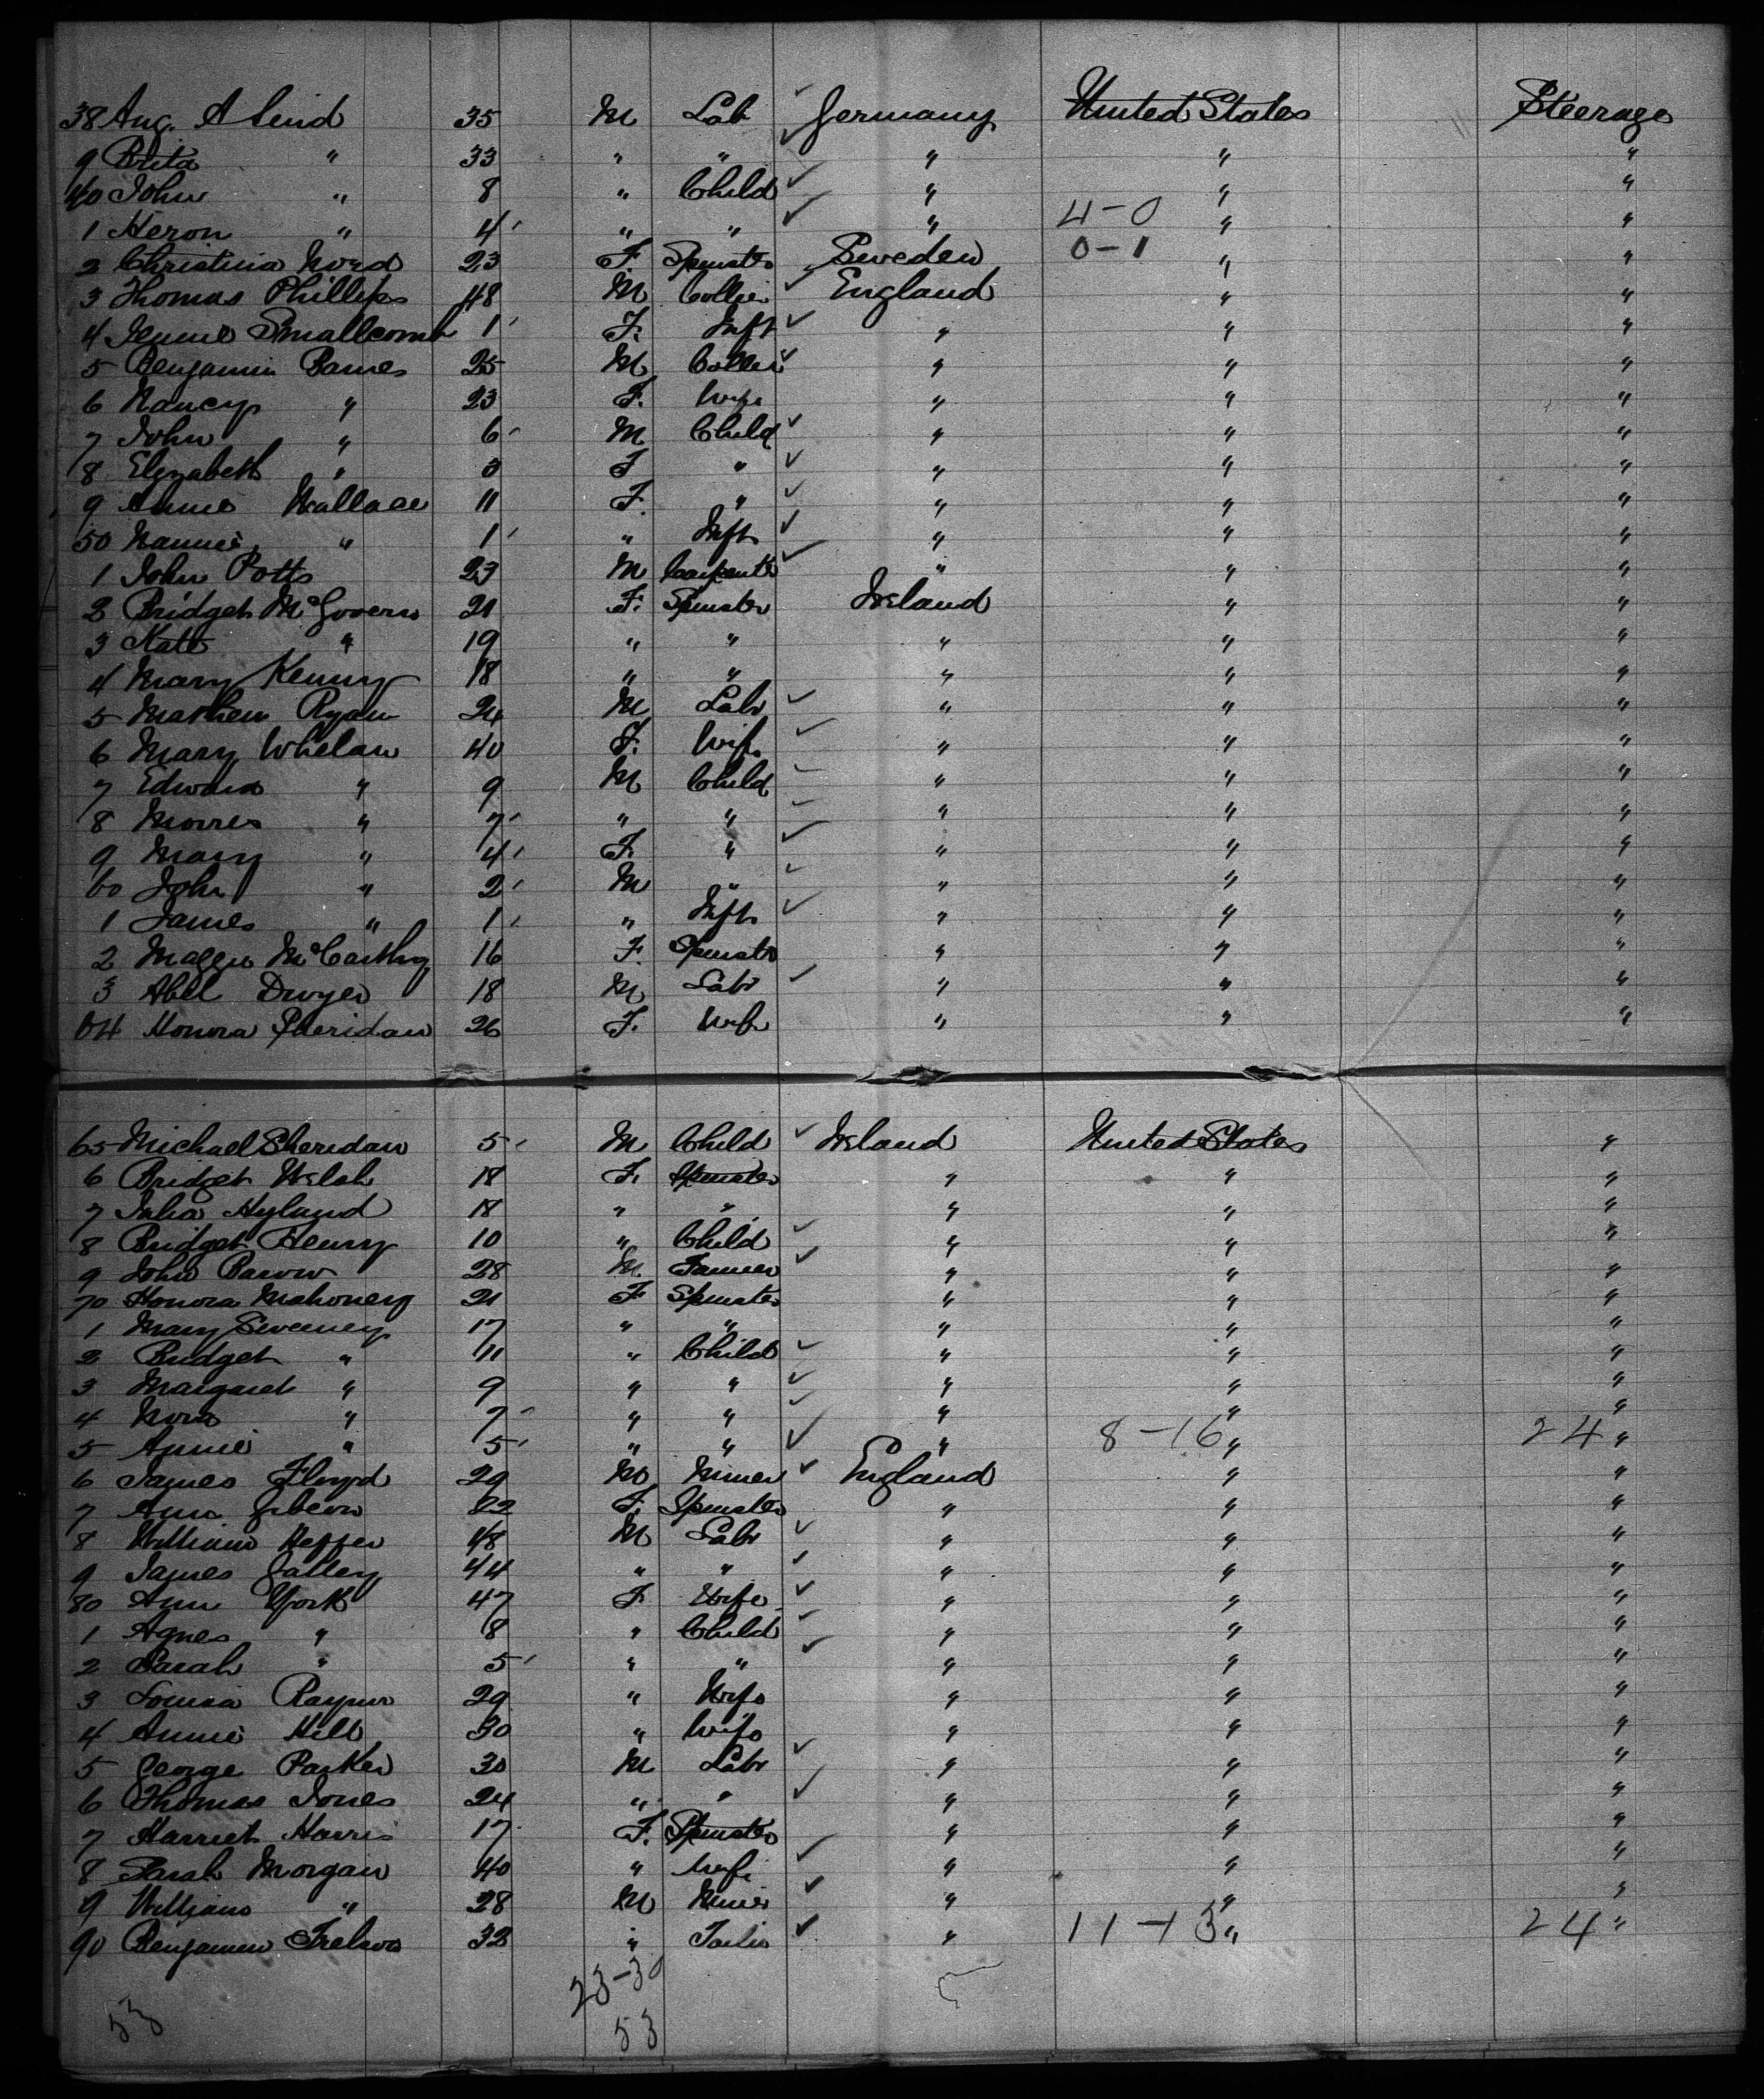 38 Aug. A Lind 35 M Lab Germany United States Steerage
9 Brita " 33 " " " " "
40 John " 8 " Child " " "
1 Heron " 4 " " " 4-0 " "
2 Christina Nord 23 F. Spinster Sweden 0-1 " "
3 Thomas Phillips 48 M Collier England " "
4 Jennie Smallcomb 1 F. Inft " " "
5 Benjamin Barnes 25 M Collier " " "
6 Nancy " 23 F. Wife " " "
7 John " 6 M Child " " "
8 Elizabeth " 3 F " " " "
9 Annie Wallace 11 F. " " " "
50 Nannie " 1 " Inft " " "
1 John Potts 23 M Carpenter " " "
2 Bridget McGovern 21 F. Spinster Ireland " "
3 Kate " 19 " " " " "
4 Mary Kenny 18 " " " " "
5 Mathew Ryan 24 M Labr " " "
6 Mary Whelan 40 F. Wife " " "
7 Edward " 9 M Child " " "
8 Morres " 7 " " " " "
9 Mary " 4 F. " " " "
60 John " 2 M " " " "
1 James " 1 " Inft " " "
2 Maggie McCarthy 16 F. Spinster " " "
3 Abel Dwyer 18 M Labr " " "
64 Honora Sheridan 26 F. Wife " " "
65 Michael Sheridan 5 M Child Ireland United States "
6 Bridget Welsh 18 F. Spinster " " "
7 Julia Hyland 18 " " " " "
8 Bridget Henry 10 " Child " " "
9 John Barow 28 M. Farmer " " "
70 Honora Mahoney 21 F Spinster " " "
1 Mary Sweeney 17 " " " " "
2 Bridget " 11 " Child " " "
3 Margaret " 9 " " " " "
4 Nora " 7 " " " " "
5 Annie " 5 " " " 8-16 " 24 "
6 James Floyd 29 M Miner England " "
7 Ann Gibson 22 F. Spinster " " "
8 William Hepper 48 M Labr " " "
9 James Galley 44 " " " " "
80 Ann York 47 F Wife " " "
1 Agnes " 8 " Child " " "
2 Sarah " 5 " " " " "
3 Louisa Raynor 29 " Wife " " "
4 Annie Hill 30 " Wife " " "
5 George Parker 30 M Labr " " "
6 Thomas Jones 24 " " " " "
7 Harriet Harris 17 F. Spinster " " "
8 Sarah Morgan 40 " Wife " " "
9 William " 28 M Miner " " "
90 Benjamin 32 " " 11-13 " 24 "
23-30
53 53